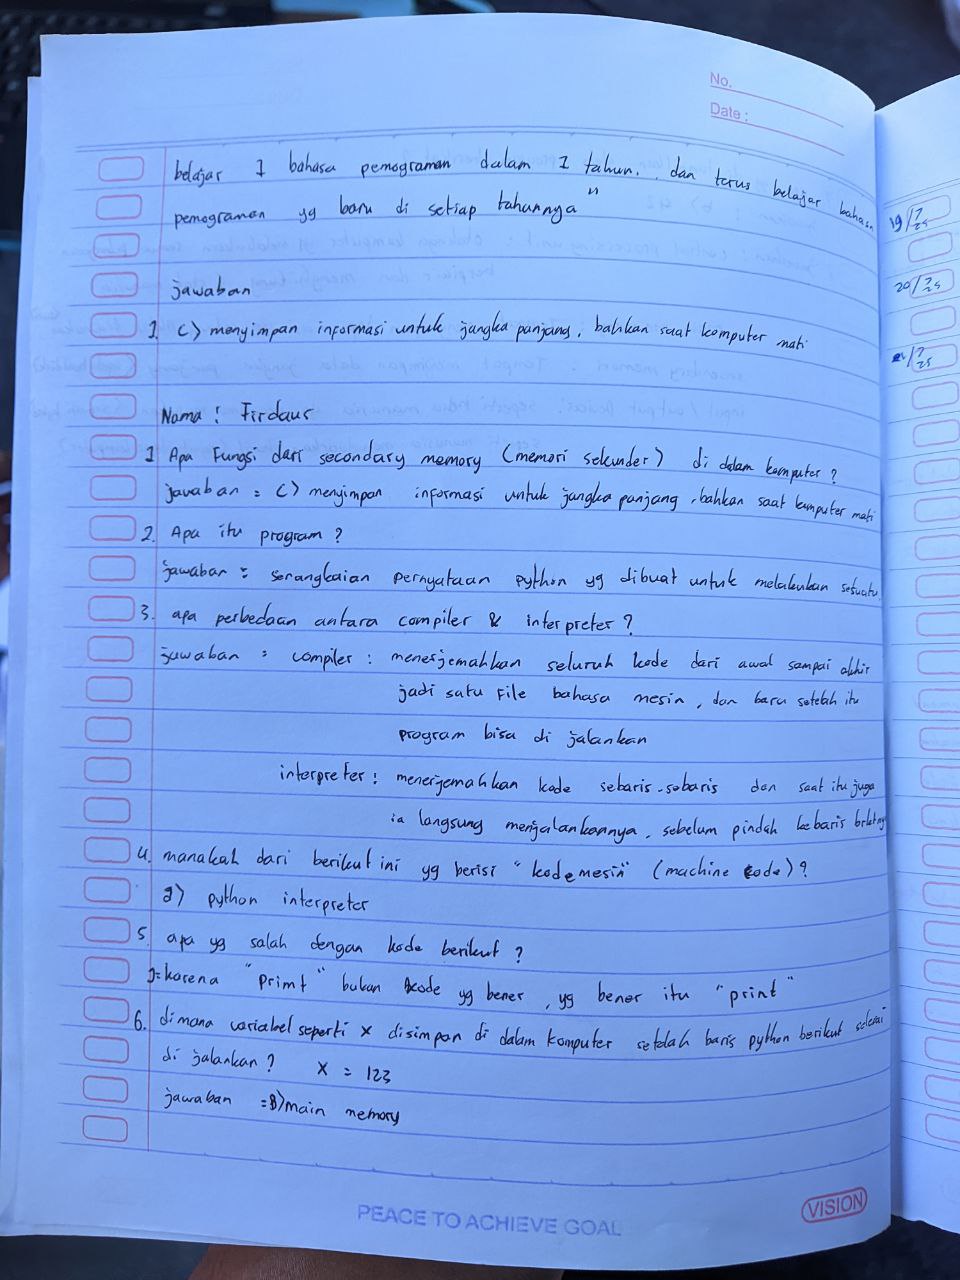 No.
Date :
belajar 1 bahasa pemograman dalam 1 tahun. dan terus belajar bahasa
pemograman yg baru di setiap tahunnya "
jawaban
1. C) menyimpan informasi untuk jangka panjang, bahkan saat komputer mati
Nama : Firdaus
1 Apa Fungsi dari secondary memory (memori sekunder) di dalam komputer ?
jawaban = C) menyimpan informasi untuk jangka panjang, bahkan saat komputer mati
2. Apa itu program ?
jawaban = serangkaian pernyataan python yg dibuat untuk melakukan sesuatu.
3. apa perbedaan antara compiler & interpreter ?
jawaban = compiler : menerjemahkan seluruh kode dari awal sampai akhir
jadi satu File bahasa mesin, dan baru setelah itu
program bisa di jalankan
interpreter : menerjemahkan kode sebaris-sebaris dan saat itu juga
ia langsung menjalankannya, sebelum pindah kebaris
4. manakah dari berikut ini yg berisi "kode mesin" (machine code) ?
) python interpreter
5. apa yg salah dengan kode berikut ?
J=karena "primt" bukan kode yg bener, yg bener itu "print"
6. dimana variabel seperti x disimpan di dalam komputer setelah baris python berikut selesai
di jalankan ? x = 123
jawaban =B) main memory
PEACE TO ACHIEVE GOAL
VISION
19/7
25
20/7
25
/7
25